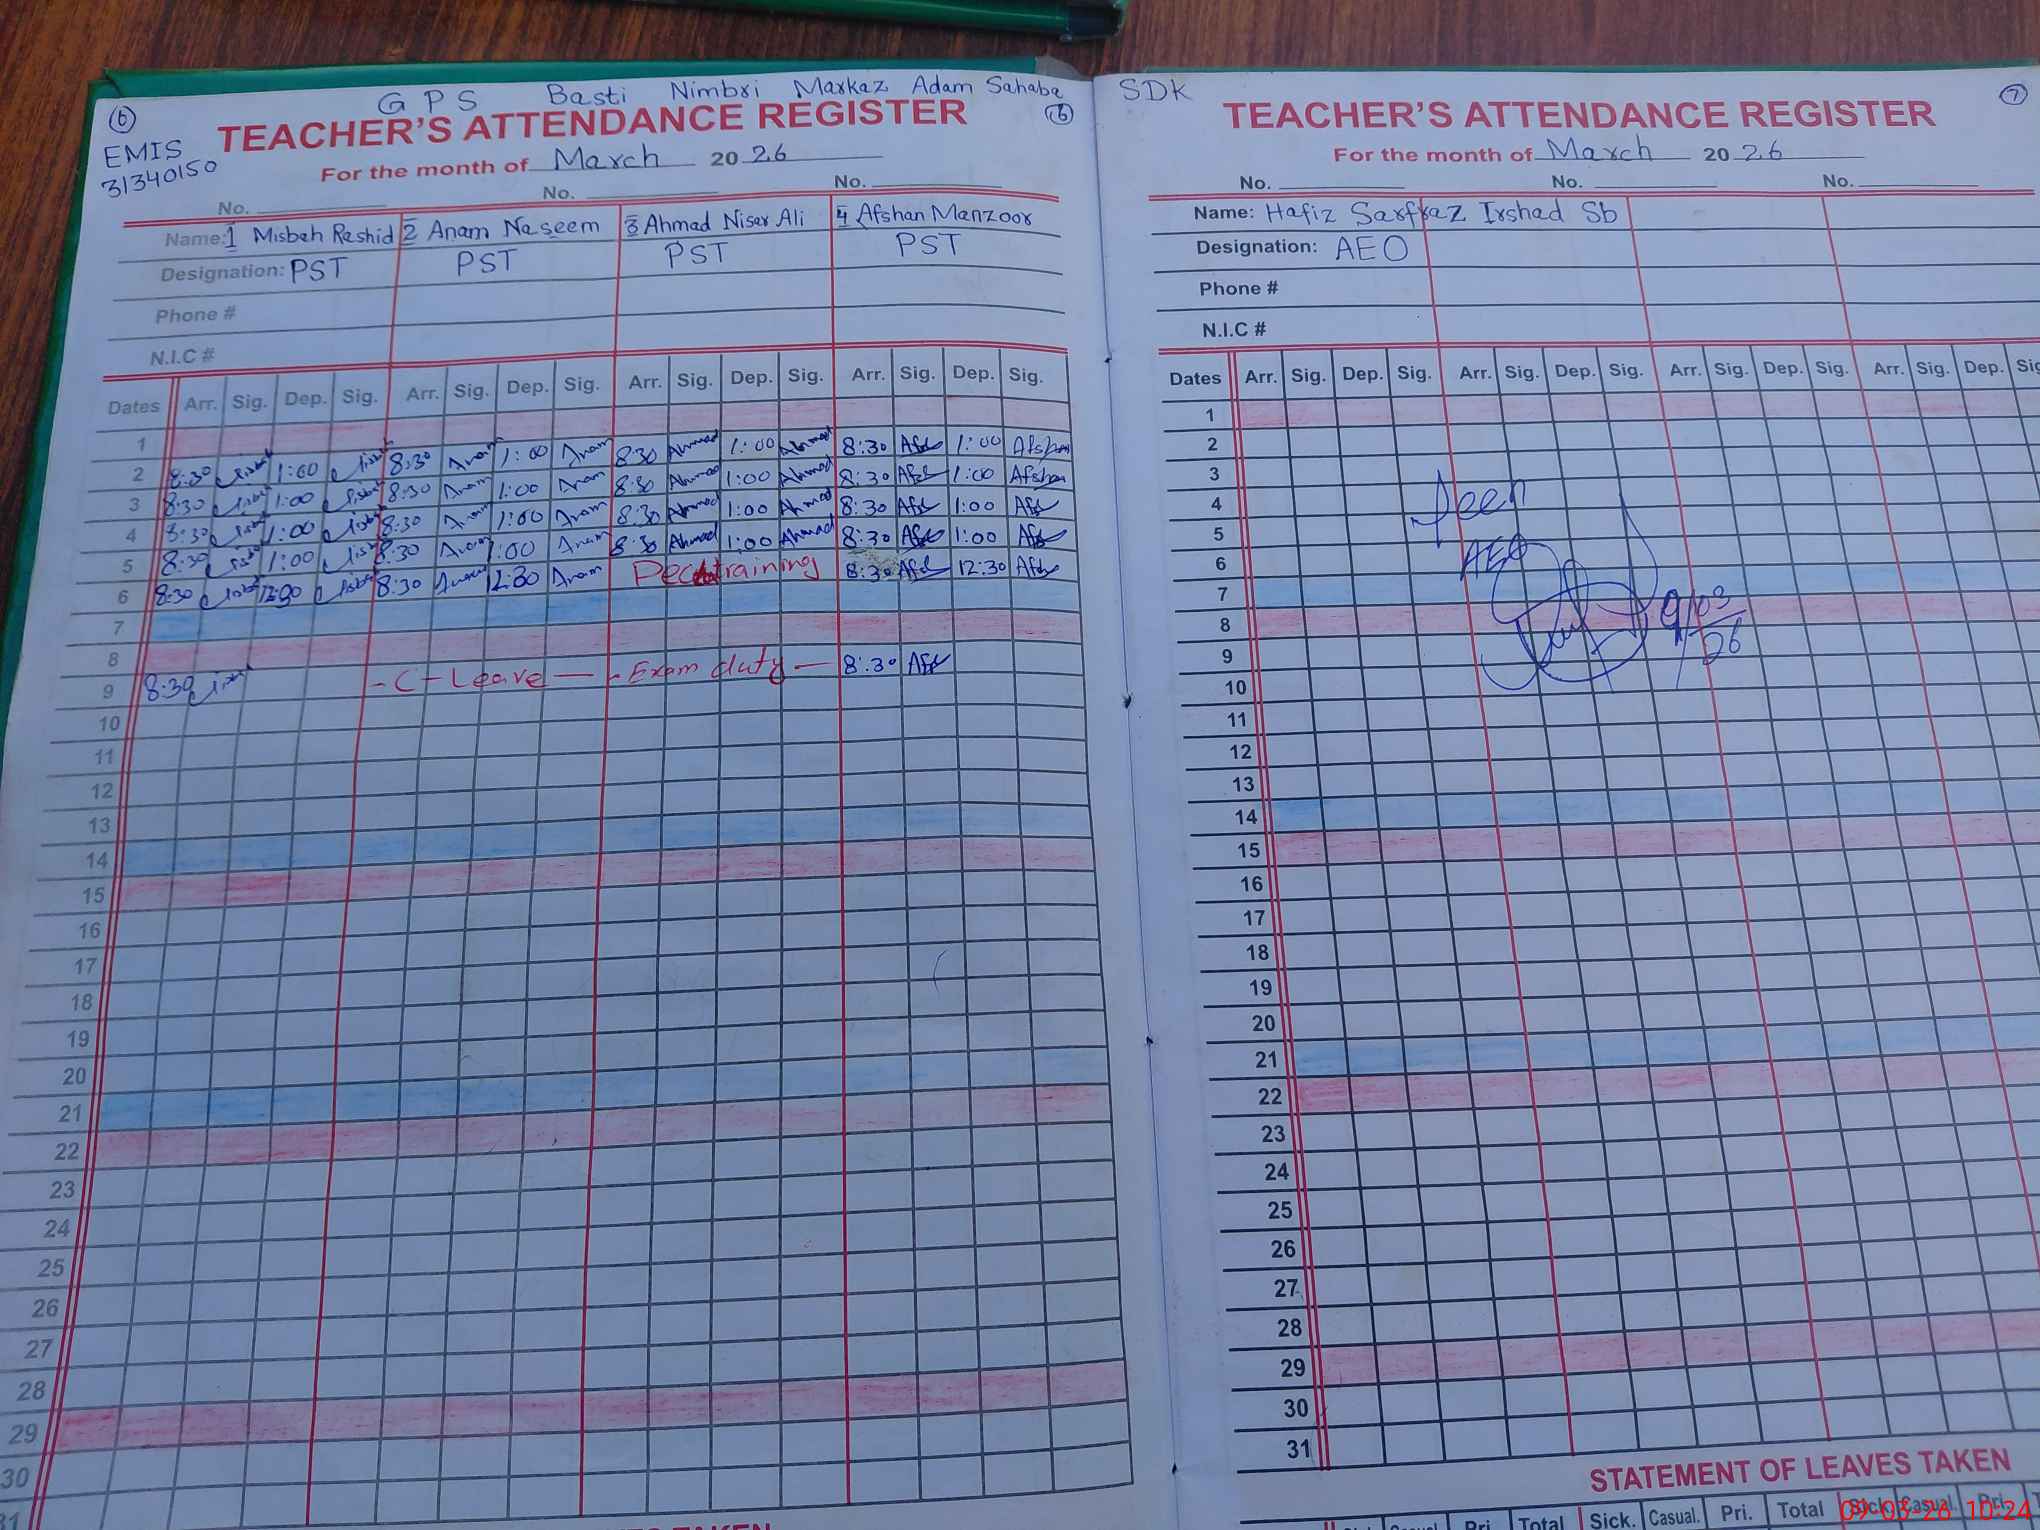 GPS Basti Nimbri Markaz Adam Sahaba
6 TEACHER'S ATTENDANCE REGISTER 6
EMIS
31340150
For the month of March 2026
No. No. No.
Name: 1 Misbah Rashid 2 Anam Naseem 3 Ahmad Nisar Ali 4 Afshan Manzoor
Designation: PST PST PST PST
Phone #
N.I.C #
Dates Arr. Sig. Dep. Sig. Arr. Sig. Dep. Sig. Arr. Sig. Dep. Sig. Arr. Sig. Dep. Sig.
1
2 8:30 1:00 8:30 Anam 1:00 Anam 8:30 Ahmad 1:00 Ahmad 8:30 Afsh 1:00 Afshan
3 8:30 1:00 8:30 Anam 1:00 Anam 8:30 Ahmad 1:00 Ahmad 8:30 Afsh 1:00 Afshan
4 8:30 1:00 8:30 Anam 1:00 Anam 8:30 Ahmad 1:00 Ahmad 8:30 Afsh 1:00 Afsh
5 8:30 1:00 8:30 Anam 1:00 Anam 8:30 Ahmad 1:00 Ahmad 8:30 Afsh 1:00 Afsh
6 8:30 12:30 8:30 Anam 12:30 Anam training 8:30 Afsh 12:30 Afsh
7
8
9 8:30 - C - Leave - - Exam duty - 8:30 Afsh
10
11
12
13
14
15
16
17
18
19
20
21
22
23
24
25
26
27
28
29
30
31
SDK
TEACHER'S ATTENDANCE REGISTER 7
For the month of March 2026
No. No. No.
Name: Hafiz Sarfraz Irshad Sb
Designation: AEO
Phone #
N.I.C #
Dates Arr. Sig. Dep. Sig. Arr. Sig. Dep. Sig. Arr. Sig. Dep. Sig. Arr. Sig. Dep.
1
2
3
4 Seen
5
6 AEO
7
8 9/03/26
9
10
11
12
13
14
15
16
17
18
19
20
21
22
23
24
25
26
27
28
29
30
31
STATEMENT OF LEAVES TAKEN
Pri. Total Sick. Casual. Pri. Total Sick. Casual. Pri.
09-03-26 10:24